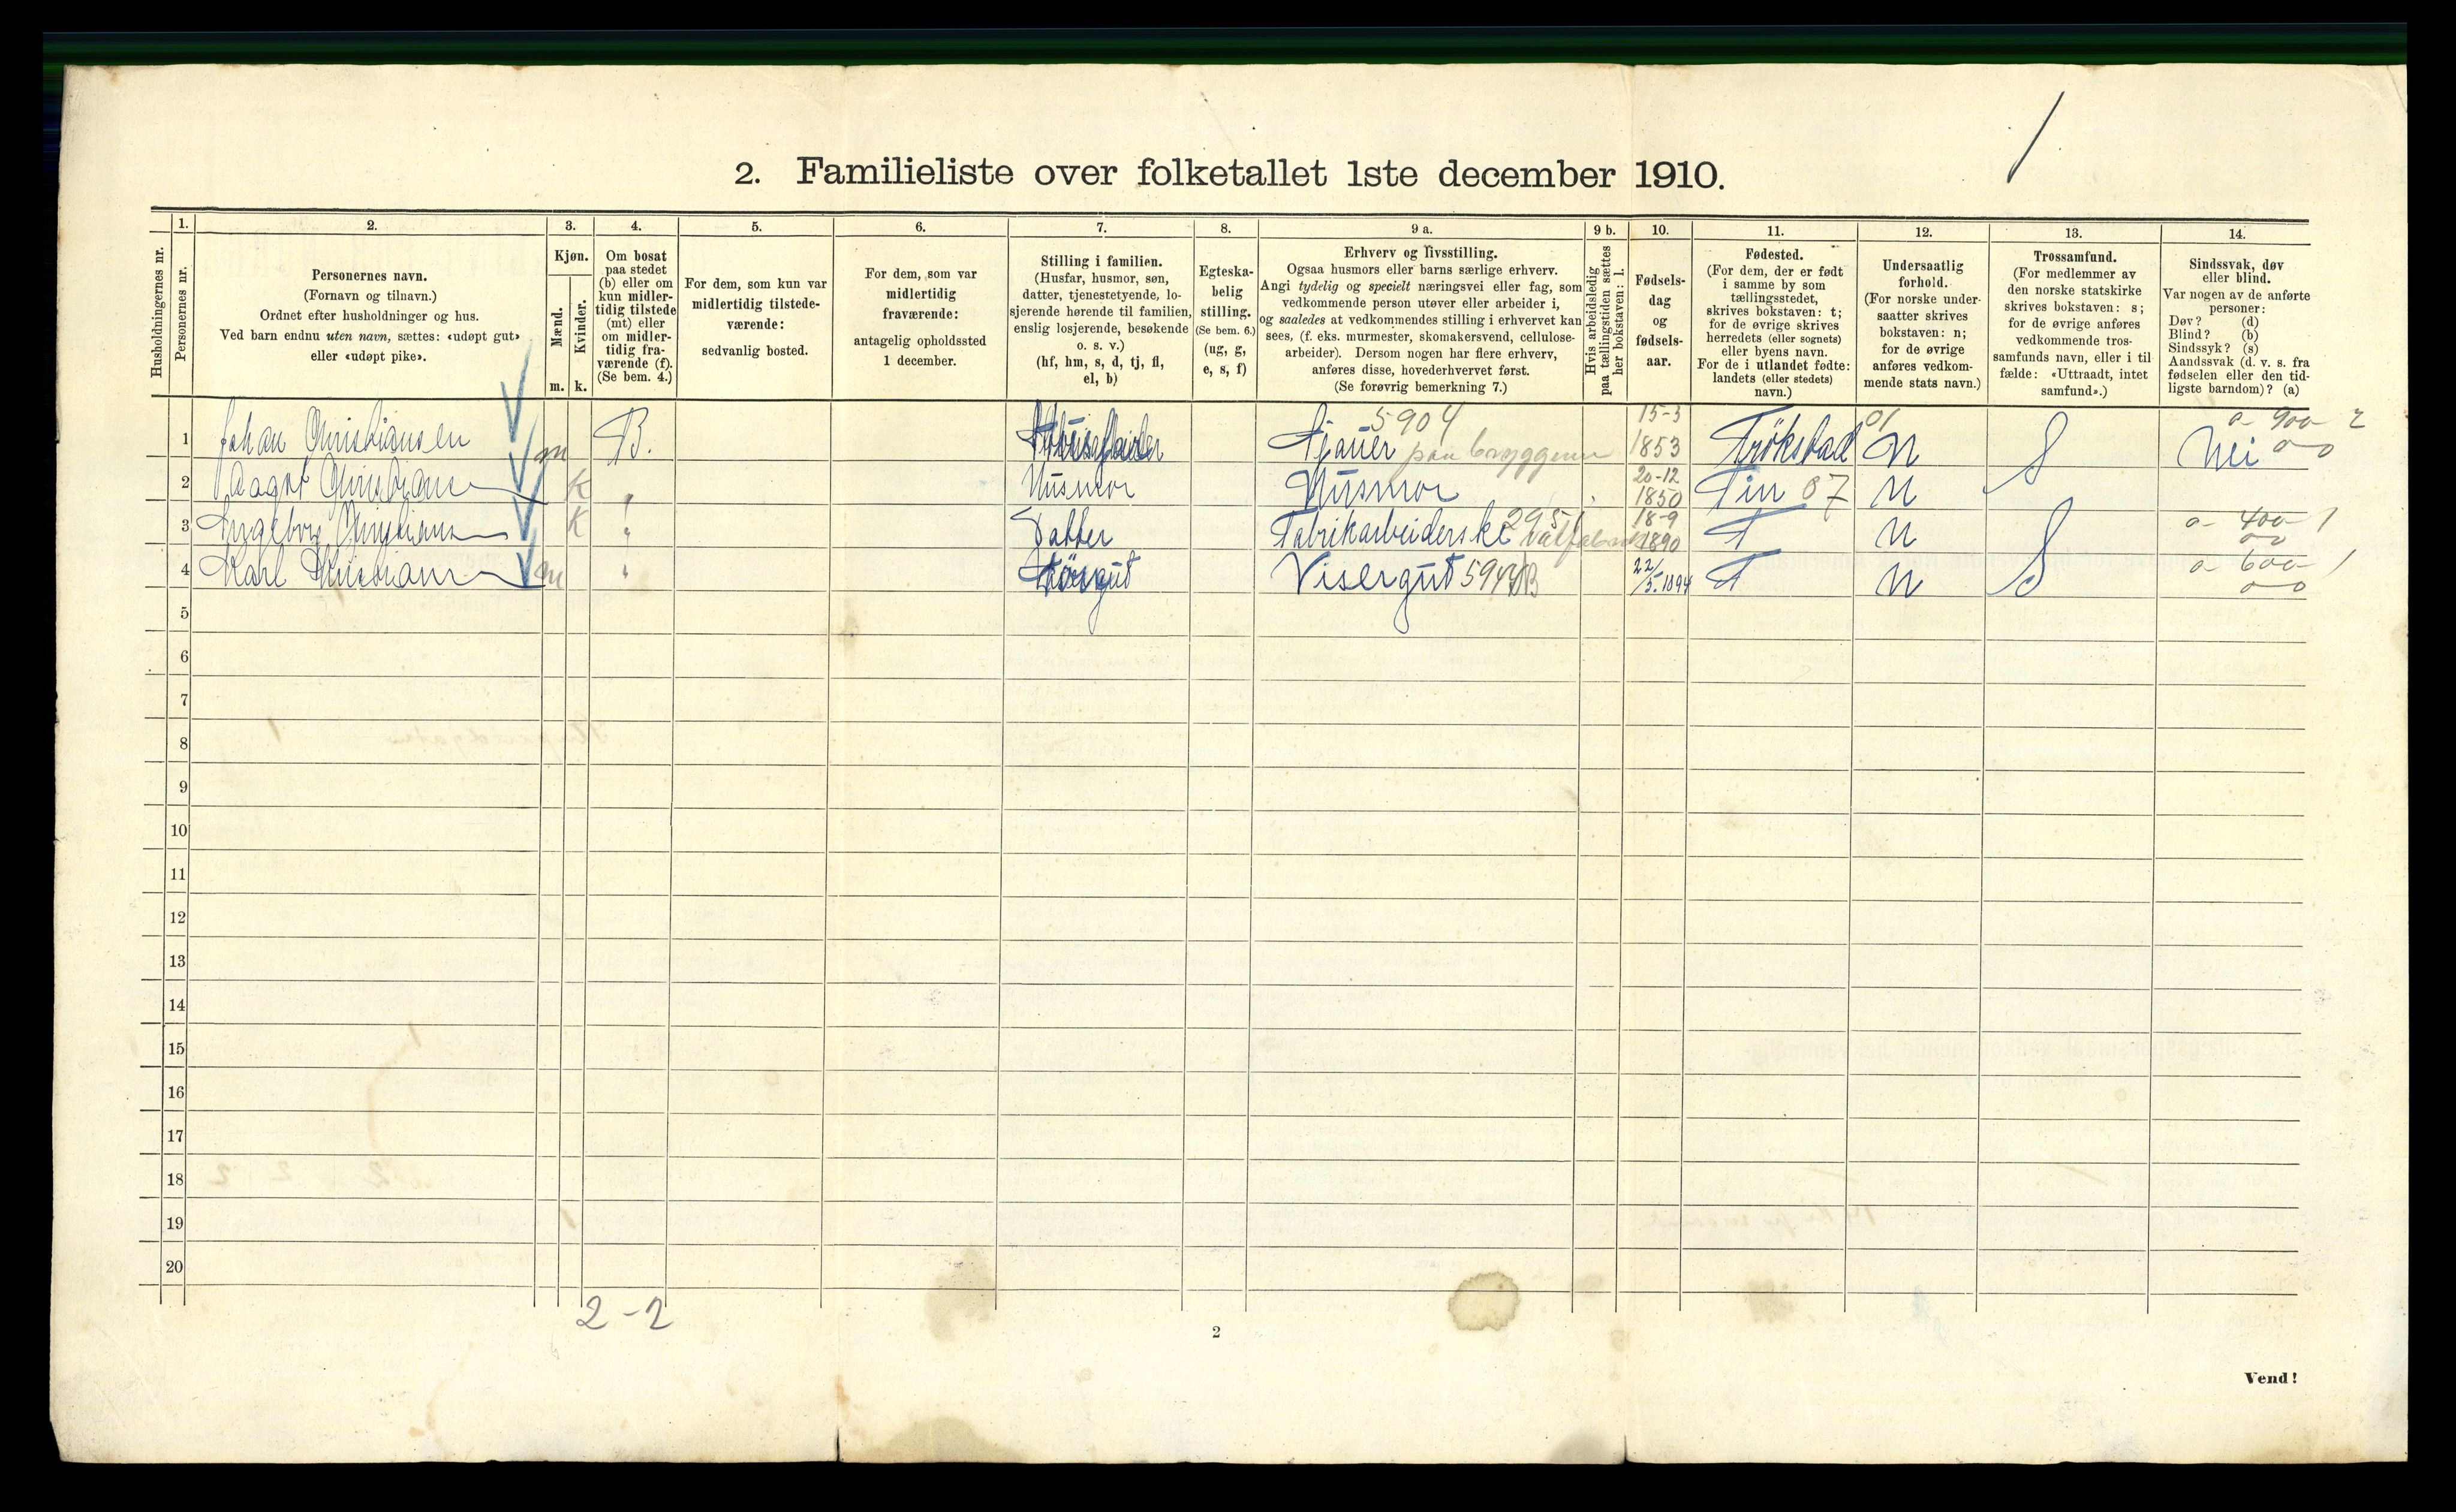 2. Familieliste over folketallet 1ste december 1910.
Husholdningernes nr.
1.
Personernes nr.
2.
Personernes navn.
(Fornavn og tilnavn.)
Ordnet efter husholdninger og hus.
Ved barn endnu uten navn, sættes: «udøpt gut»
eller «udøpt pike».
3.
Kjøn.
Mænd.
Kvinder.
m. k.
4.
Om bosat
paa stedet
(b) eller om
kun midler-
tidig tilstede
(mt) eller
om midler-
tidig fra-
værende (f).
(Se bem. 4.)
5.
For dem, som kun var
midlertidig tilstede-
værende:
sedvanlig bosted.
6.
For dem, som var
midlertidig
fraværende:
antagelig opholdssted
1 december.
7.
Stilling i familien.
(Husfar, husmor, søn,
datter, tjenestetyende, lo-
sjerende hørende til familien,
enslig losjerende, besøkende
o. s. v.)
(hf, hm, s, d, tj, fl,
el, b)
8.
Egteska-
belig
stilling.
(Se bem. 6.)
(ug, g,
e, s, f)
9 a.
Erhverv og livsstilling.
Ogsaa husmors eller barns særlige erhverv.
Angi tydelig og specielt næringsvei eller fag, som
vedkommende person utøver eller arbeider i,
og saaledes at vedkommendes stilling i erhvervet kan
sees, (f. eks. murmester, skomakersvend, cellulose-
arbeider). Dersom nogen har flere erhverv,
anføres disse, hovederhvervet først.
(Se forøvrig bemerkning 7.)
9 b.
Hvis arbeidsledig
paa tællingstiden sættes
her bokstaven: l.
10.
Fødsels-
dag
og
fødsels-
aar.
11.
Fødested.
(For dem, der er født
i samme by som
tællingsstedet,
skrives bokstaven: t;
for de øvrige skrives
herredets (eller sognets)
eller byens navn.
For de i utlandet fødte:
landets (eller stedets)
navn.)
12.
Undersaatlig
forhold.
(For norske under-
saatter skrives
bokstaven: n;
for de øvrige
anføres vedkom-
mende stats navn.)
13.
Trossamfund.
(For medlemmer av
den norske statskirke
skrives bokstaven: s;
for de øvrige anføres
vedkommende tros-
samfunds navn, eller i til
fælde: «Uttraadt, intet
samfund».)
14.
Sindssvak, døv
eller blind.
Var nogen av de anførte
personer:
Døv? (d)
Blind? (b)
Sindssyk? (s)
Aandssvak (d. v. s. fra
fødselen eller den tid-
ligste barndom)? (a)
1 Johan Christiansen m B. 5904 Sjauer paa bryggerne 15-3 1853 Trøkstad 01 N S Nei a 900 2
2 K " Husmor Husmor 20-12 1850 Tin 87 N
3 Ingeborg K " Datter Fabrikarbeiderske 295 18-9 1890 T N S a 400 1
4 Karl m " Visergut 22/5.1894 T N S a 600 1
5
6
7
8
9
10
11
12
13
14
15
16
17
18
19
20
2-2
2
Vend!